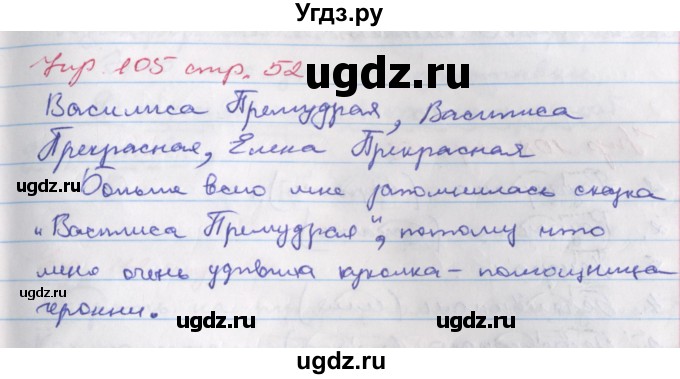 Угдз.ру
Упр 105 стр. 52
ugdz.ru
Василиса Премудрая, Василиса
Прекрасная, Елена Прекрасная
ugdz.ru
ugdz.ru
Больше всего мне запомнилась сказка
"Василиса Премудрая", потому что
меня очень удивила куколка - помощница
героини.
ugdz.ru
ugdz.ru
ugdz.ru
ugdz.ru